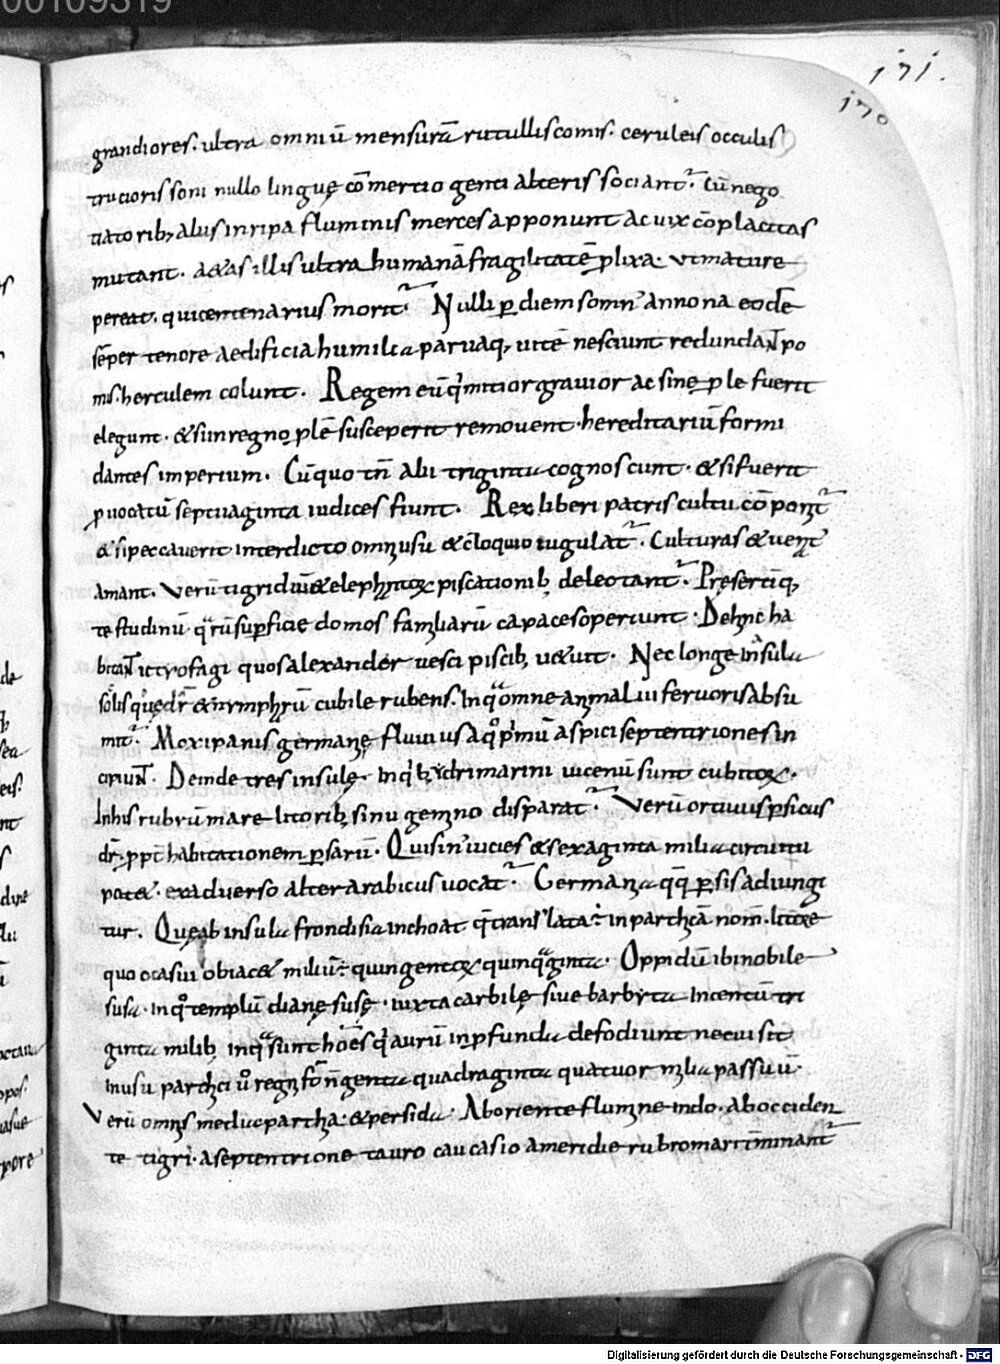 00109319
171.
170
grandiores. ultra omniū mensurā rutullis comis. ceruleis occulis
trucioris soni nullo linguę cōmertio genti alteris sociant᷑. Cū nego
tiatorib; alus in ripa fluminis merces apponunt ac uix cōplacitas
mutant. aetas illis ultra humanā fragilitatē plixa ut mature
pereat. qui centenarius morit᷑. Nulli p̱ diem somn' annona eodē
sēper tenore aedificia humilia paruaq; uitē nesciunt redundaNT po
mis. herculem colunt. Regem eū q' mitior grauior ac sine ple fuerit
elegunt. & si in regno plē susceperit remouent. hereditariū formi
dantes imperium. Cū quo tn̄ alii triginta cognoscunt. & si fuerit
puocatū septuaginta iudices fiunt. Rex liberi patris cultu cōponit᷑
& si peccauerit interdicto omni usu & cloquio iugulat᷑. Culturas & uenat̄
amant. Verū tigridū & elephantoꝝ piscationib; delectant᷑. Pręsertīq;
testudinū quarū superficie domos familiarū capaces operiunt. Dehinc ha
bitaNT ictyofagi quos alexander uesci piscib; uetuit. Nec longe insula
solis que dr̄ & nympharū cubile rubens. In qua omne animal ui feruoris absu
mit᷑. Moxipanis germanę fluuius a quo primū aspici septentriones in
cipiuNT. Deinde tres insulę. In quib; ydri marini uicenū sunt cubitoꝝ.
In his rubrū mare litorib; sinu gemino disparat᷑. Verū ortiuus psicus
dr̄. ppt̄ habitationem persarū. Qui sin' uicies & sexaginta milia circuitu
patet. ex aduerso alter arabicus uocat᷑. Germania quoq; persis adiungi
tur. Quę ab insula frondisia inchoat quę translata ÷ in parthicā nom̄. litore
quo ocasui obiacet miliū ÷ quingentoꝝ quinquaginta. Oppidū ibi nobile
susa. in quo templū dianę susę. iuxta carbilę siue barbyta. In centū tri
ginta milib; in qua sunt hoēs qui aurū in pfunda defodiunt ne cui sit
in usu parthici ū regni fōn genta quadraginta quatuor milia passuū.
Verū omnis media parthia. & persida. Ab oriente flumine indo. ab occiden
te tigri. a septentrione tauro caucasio a meridie rubro mari iminant᷑
Digitalisierung gefördert durch die Deutsche Forschungsgemeinschaft - DFG